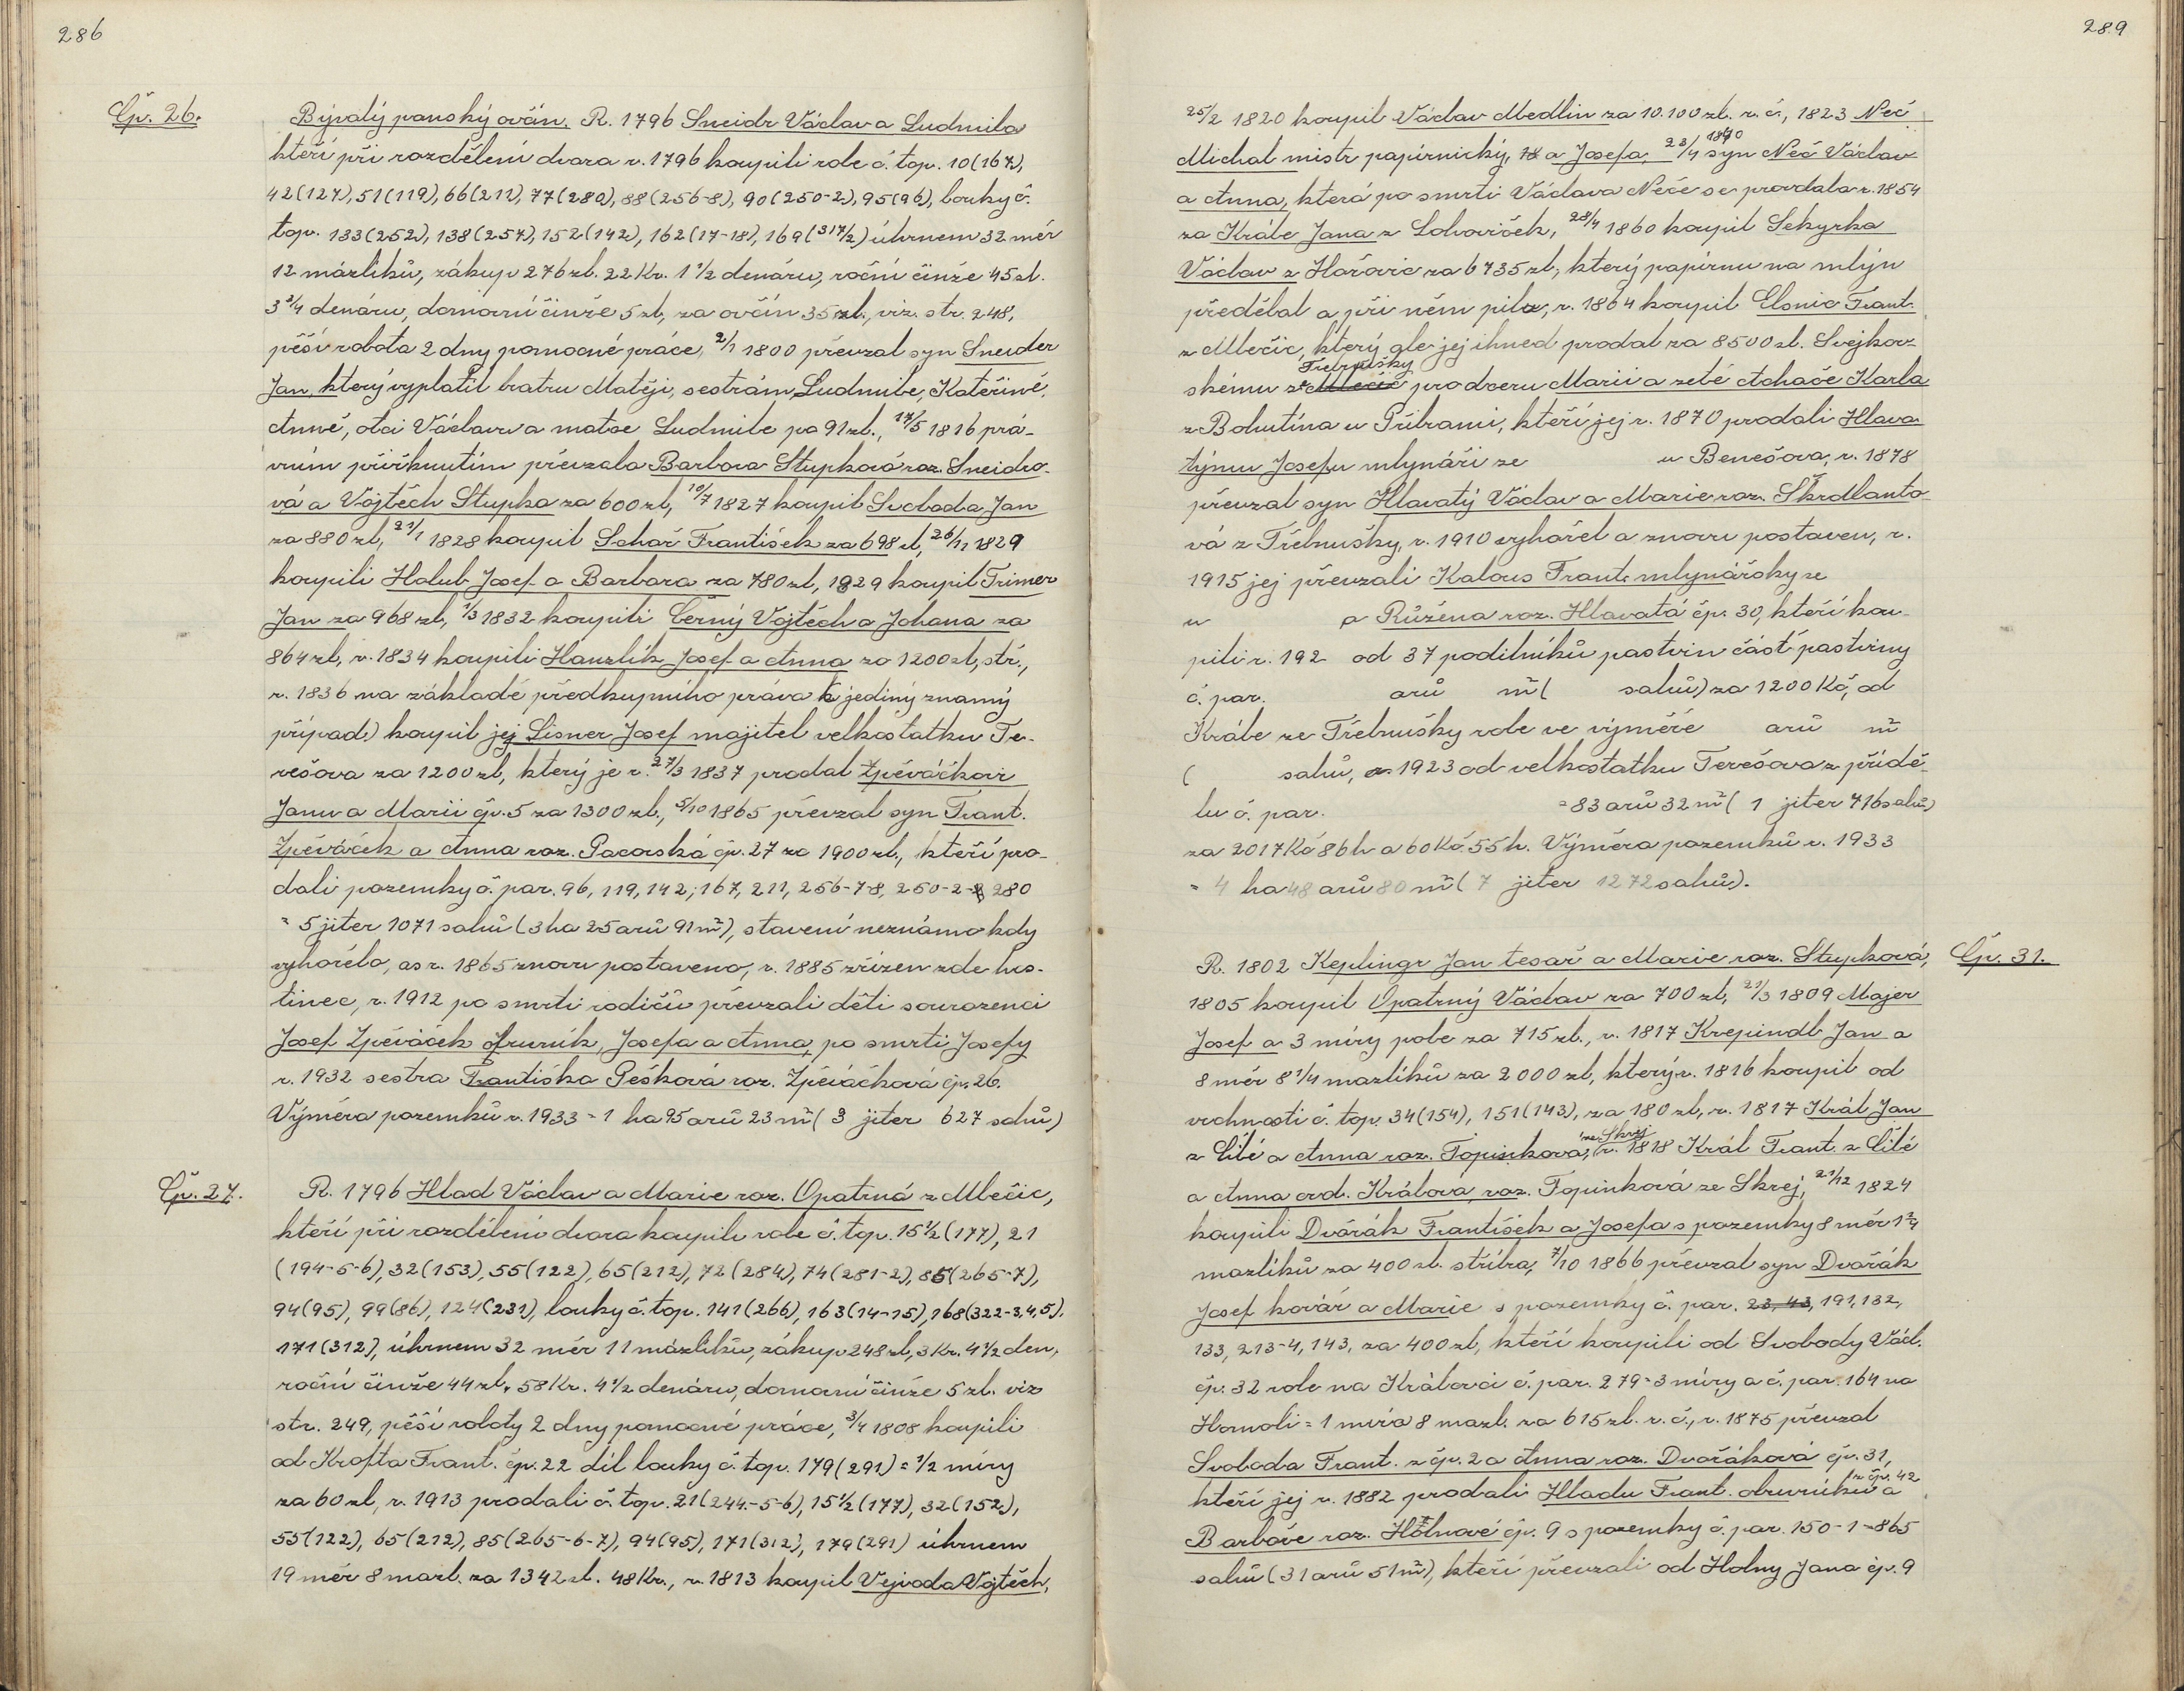 286
Čp. 26.
Bývalý panský ovčín. R. 1796 Sneidr Václav a Ludmila
kteří při rozdělení dvora r. 1796 koupili role č. top. 10(167),
42(127), 51(119), 66(211), 77(280), 88(256-8), 90(250-2), 95(96), louky č.
top. 133(252), 138(257), 152(142), 162(17-18), 169(317/2) úhrnem 32 měr
12 mázlíků, zákup 276 zl. 22 Kr. 1 1/2 denáru, roční činže 45 zl.
3 3/4 denáru, domovní činže 5 zl, za ovčín 35 zl., viz. str. 248,
pěší robota 2 dny pomocné práce, 2/1 1800 převzal syn Sneider
Jan, který vyplatil bratru Matěji, sestrám Ludmile, Kateřině,
Anně, otci Václavu a matce Ludmile po 91 zl., 17/5 1816 prá-
vním přiřknutím převzala Barbora Stupková roz. Sneidro-
vá a Vojtěch Stupka za 600 zl, 10/7 1827 koupil Svoboda Jan
za 880 zl, 21/1 1828 koupil Sohař František za 698 zl, 26/11 1829
koupili Holub Josef a Barbara za 780 zl, 1829 koupil Trimer
Jan za 968 zl, 1/3 1832 koupili Černý Vojtěch a Johana za
864 zl, r. 1834 koupili Hanzlík Josef a Anna za 1200 zl, stř.,
r. 1836 na základě předkupního práva (jediný znamý
případ) koupil jej Lisner Josef majitel velkostatku Te-
rešova za 1200 zl, který je r. 27/3 1837 prodal Zpěváčkovi
Janu a Marii čp. 5 za 1300 zl., 5/10 1865 převzal syn Frant.
Zpěváček a Anna roz. Pacovská čp. 27 za 1900 zl., kteří pro-
dali pozemky č. par. 96, 119, 142, 167, 211, 256-7-8, 250-2- 280
= 5 jiter 1071 sahů (3 ha 25 arů 91 m²), stavení neznámo kdy
vyhořelo, as r. 1865 znovu postaveno, r. 1885 zřízen zde hos-
tinec, r. 1912 po smrti rodičů převzali děti sourozenci
Josef Zpěváček , Josefa a Anna, po smrti Josefy
r. 1932 sestra Františka Pešková roz. Zpěváčková čp. 26.
Výměra pozemků r. 1933 = 1 ha 95 arů 23 m² ( 3 jiter 627 sahů)
Čp. 27.
R. 1796 Hlad Václav a Marie roz. Opatrná z Mlečic,
kteří při rozdělení dvora koupili role č. top. 15 1/2 (177), 21
(194-5-6), 32(153), 55(122), 65(212), 72(284), 74(281-2), 85(265-7),
94(95), 99(86), 124(231), louky č. top. 141(266), 163(14-15), 168(322-3,4,5),
171(312), úhrnem 32 měr 11 mázlíků, zákup 248 zl, 3 Kr. 4 1/2 den,
roční činže 44 zl. 58 Kr. 4 1/2 denáru, domovní činže 5 zl. viz
str. 249, pěší roboty 2 dny pomocné práce, 3/4 1808 koupili
od Krofta Frant. čp. 22 díl louky č. top. 179(291) = 1/2 míry
za 60 zl, r. 1913 prodali č. top. 21(244.-5-6), 15 1/2 (177), 32(152),
55(122), 65(212), 85(265-6-7), 94(95), 171(312), 179(291) úhrnem
19 měr 8 mazl. za 1342 zl. 48 Kr., r. 1813 koupil Vejvoda Vojtěch,
289
25/2 1820 koupil Václav Medlin za 10.100 zl. r. č., 1823 Neč
Michal mistr papírnický, a Josefa, 23/4 1840 syn Neč Václav
a Anna, která po smrti Václava Neče se provdala r. 1854
za Krále Jana z Lohoviček, 28/4 1860 koupil Sekyrka
Václav z Hořovic za 6735 zl, který papírnu na mlýn
předělal a při něm pilu, r. 1864 koupil Elsnic Frant.
z Mlečic, který gle jej ihned prodal za 8500 zl. Svejkov-
skému z Mlečic Třebnušky pro dceru Marii a zetě Achače Karla
z Bohutína u Příbrami, kteří jej r. 1870 prodali Hlava-
týmu Josefu mlynáři ze u Benešova, r. 1878
převzal syn Hlavatý Václav a Marie roz. Škrdlanto-
vá z Třebnušky, r. 1910 vyhořel a znovu postaven, r.
1915 jej převzali Kalous Frant. mlynářský ze
u a Růžena roz. Hlavatá čp. 30, kteří kou-
pili r. 192 od 37 podílníků pastvin část pastviny
č. par. arů m² ( sahů) za 1200 Kč, od
Krále ze Třebnušky role ve výměře arů m²
( sahů, r. 1923 od velkostatku Terešova z přídě-
lu č. par. = 83 arů 32 m² ( 1 jiter 716 sahů)
za 2017 Kč 86 h a 60 Kč 55 h. Výměra pozemků r. 1933
= 4 ha 48 arů 80 m² ( 7 jiter 1272 sahů).
Čp. 31.
R. 1802 Keplingr Jan tesař a Marie roz. Stupková,
1805 koupil Opatrný Václav za 700 zl, 21/3 1809 Majer
Josef a 3 míry pole za 715 zl., r. 1817 Krepindl Jan a
8 měr 8 1/4 mazlíků za 2000 zl, který r. 1816 koupil od
vrchnosti č. top. 34(154), 151(143), za 180 zl, r. 1817 Král Jan
z Lité a Anna roz. Topinková, ze Skrej r. 1818 Král Frant. z Lité
a Anna ovd. Králová, roz. Topinková ze Skrej, 21/12 1824
koupili Dvořák František a Josefa s pozemky 8 měr 1 2/4
mazlíků za 400 zl. stříbra, 7/10 1866 převzal syn Dvořák
Josef kovář a Marie s pozemky č. par. 23, 43, 191, 132,
133, 213-4, 143, za 400 zl, kteří koupili od Svobody Václ.
čp. 32 role na Královci č. par. 279 = 3 míry a č. par. 164 na
Homoli = 1 míra 8 mazl. za 615 zl. r. č., r. 1875 převzal
Svoboda Frant. z čp. 2 a Anna roz. Dvořáková čp. 31,
kteří jej r. 1882 prodali Hladu Frant. obuvníku z čp. 42 a
Barboře roz. Holnové čp. 9 s pozemky č. par. 150-1 = 865
sahů (31 arů 51 m²), kteří převzali od Holny Jana čp. 9